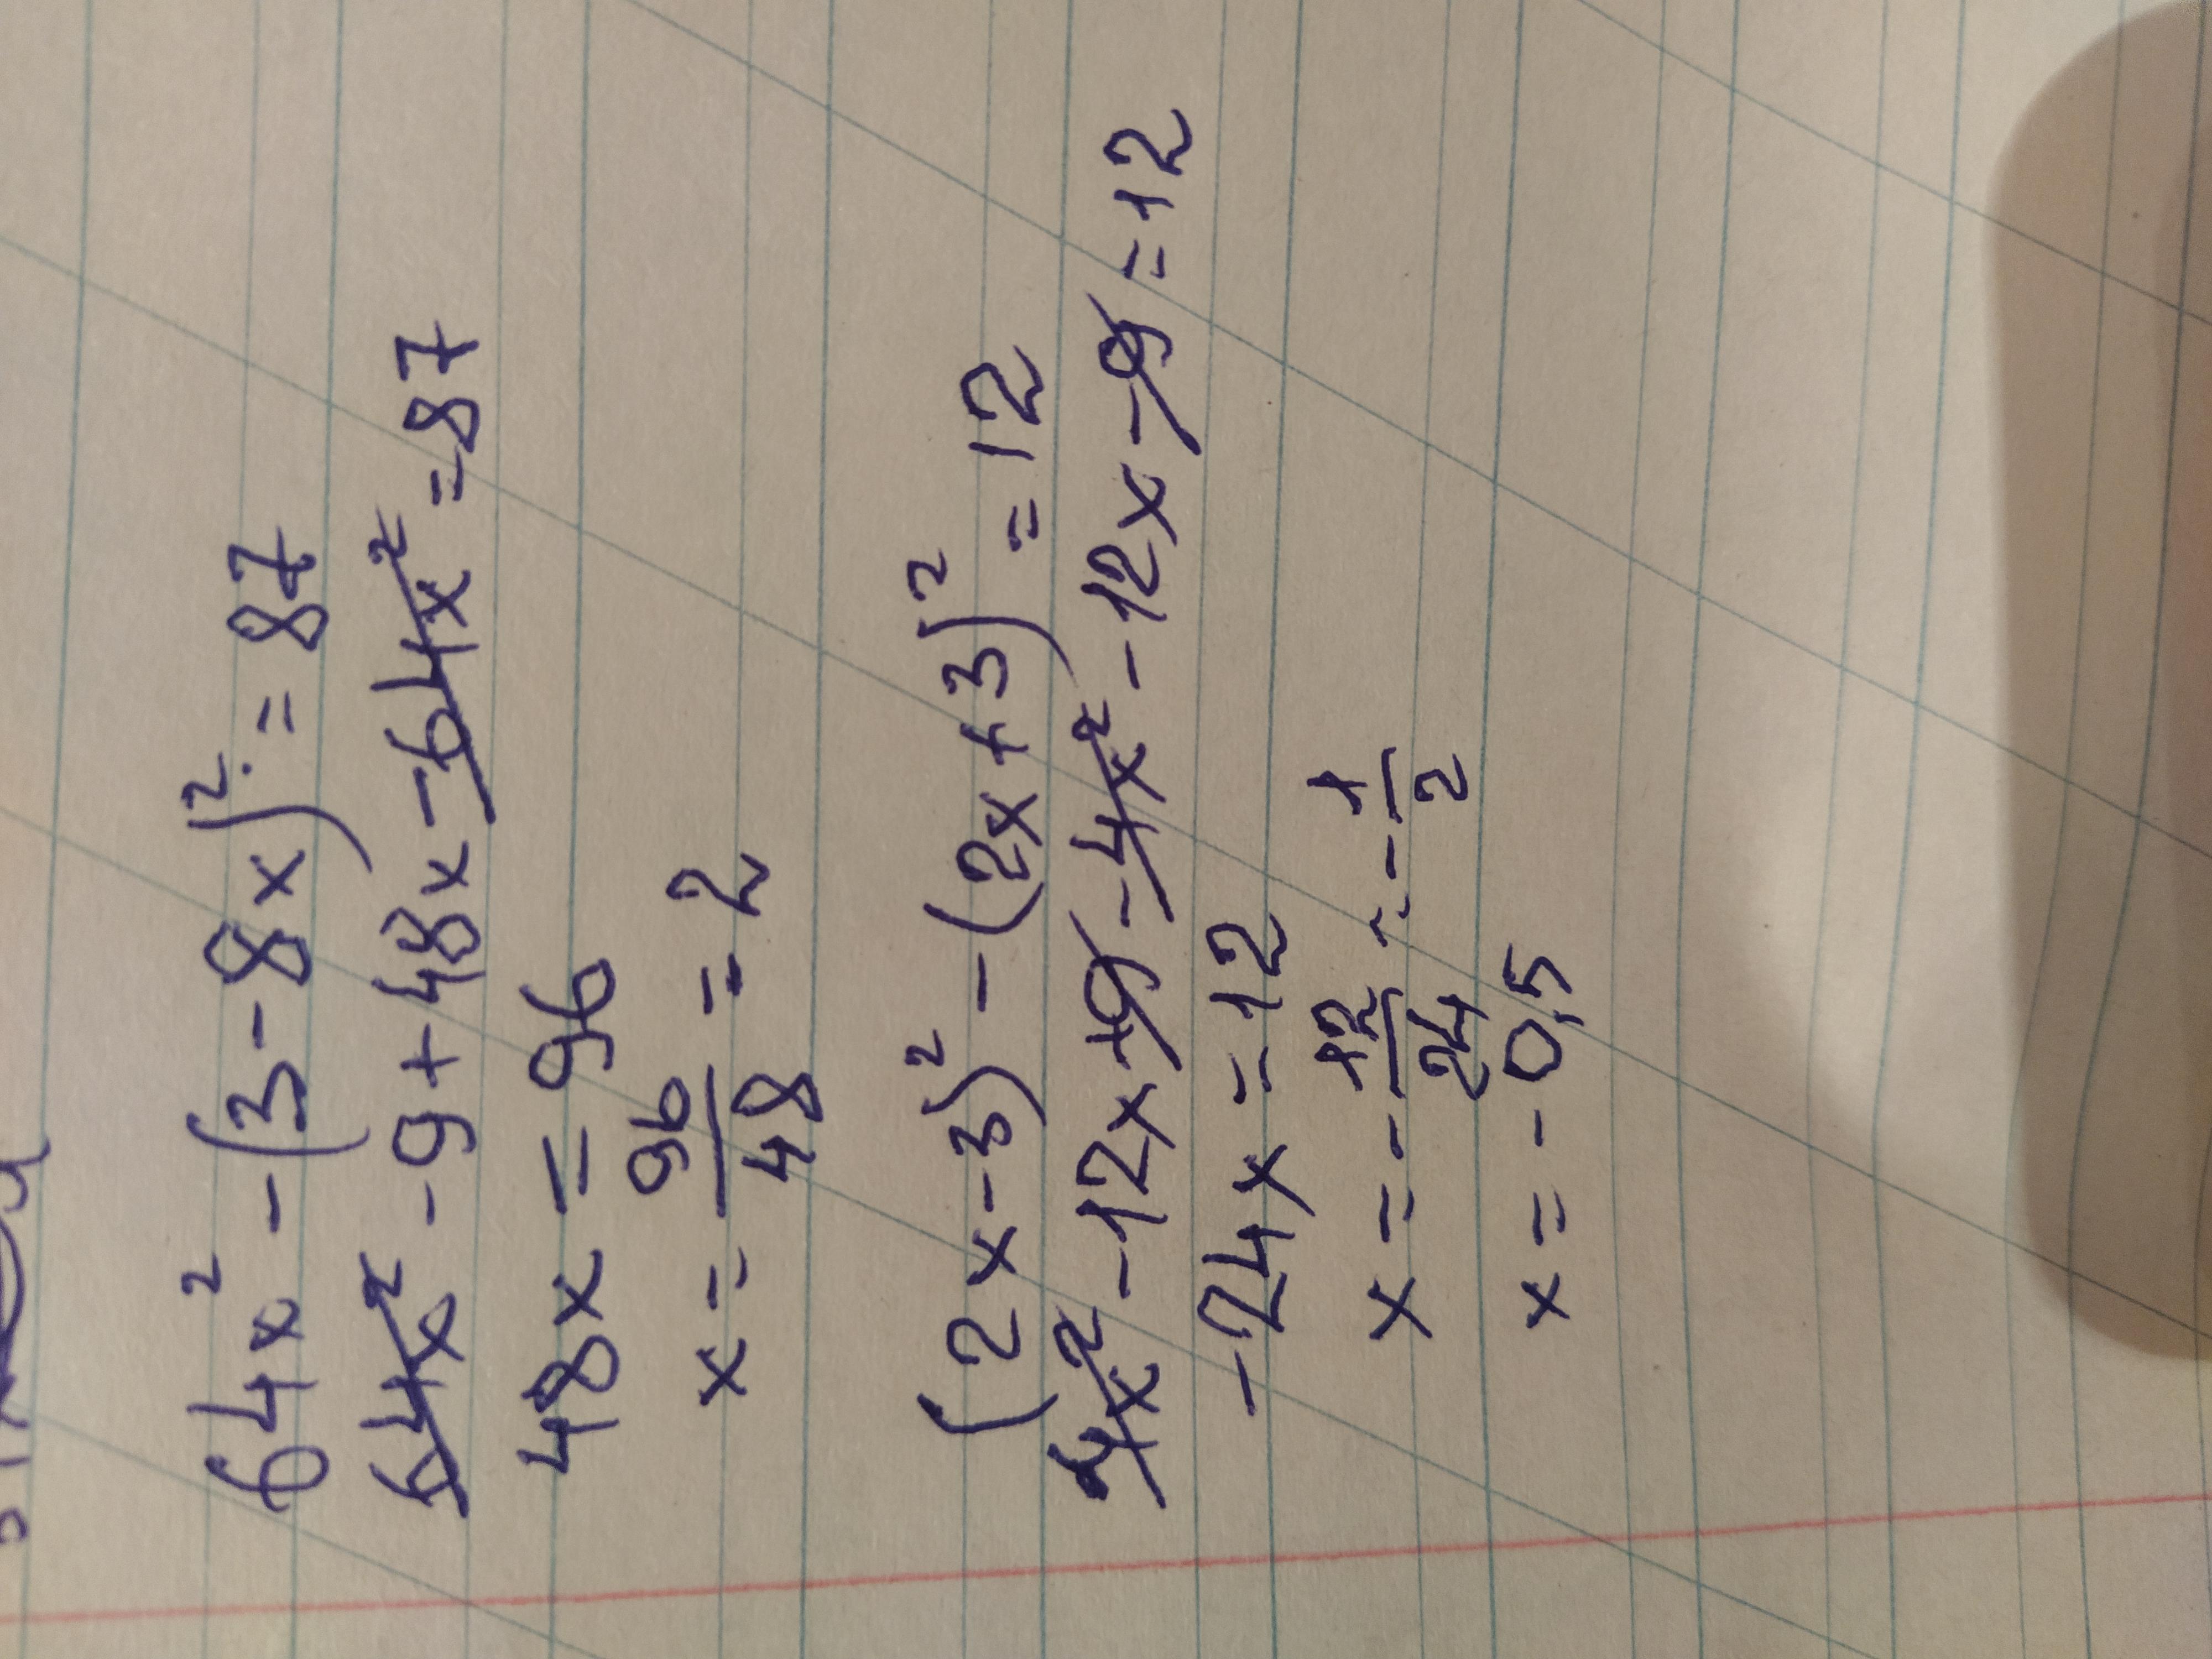 64x² - (3 - 8x)² = 87
64x² - 9 + 48x - 64x² = 87
48x = 96
x = 96/48 = 2
(2x - 3)² - (2x + 3)² = 12
4x² - 12x + 9 - 4x² - 12x - 9 = 12
-24x = 12
x = - 12/24 = - 1/2
x = - 0,5